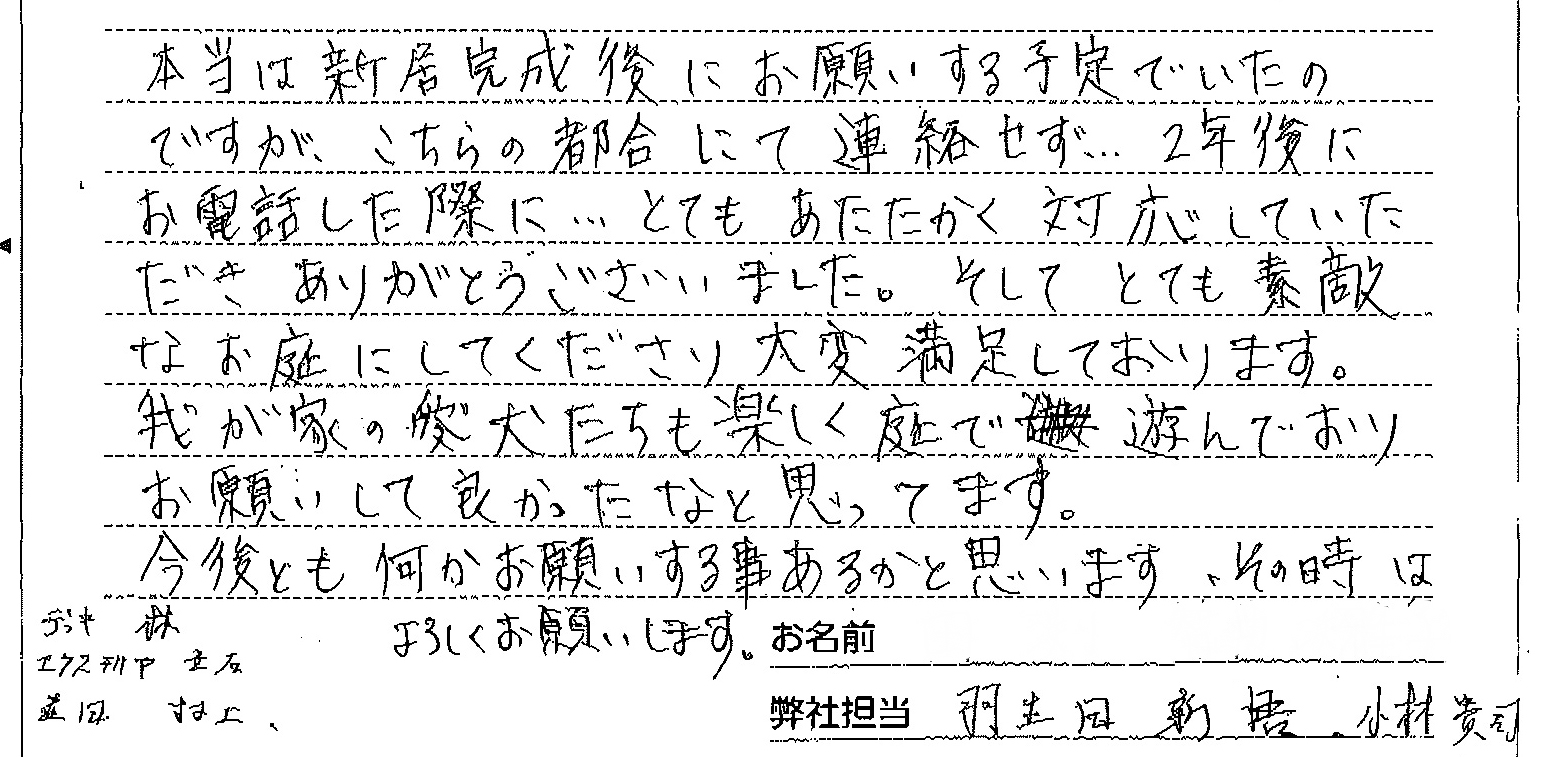 本当は新居完成後にお願いする予定でいたの
ですが、こちらの都合にて連絡せず… 2年後に
お電話した際に…とてもあたたかく対応していた
だき ありがとうございました。そして とても素敵
なお庭にしてくださり大変満足しております。
我が家の愛犬たちも楽しく庭で遊んでおり
お願いして良かったなと思ってます。
今後とも何かお願いする事あるかと思います、その時は
よろしくお願いします。
デッキ 林
エクステリア 立石
村上、
お名前
弊社担当 羽生田 新悟、小林 貴司